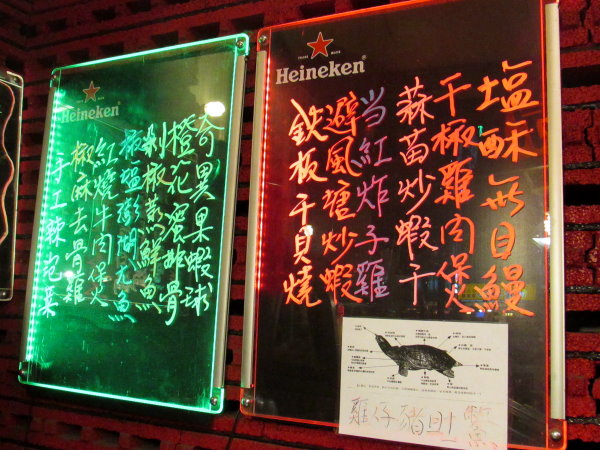 Heineken
塩酥無目鰻
干椒雞肉煲
蒜苗炒蝦干
当紅炸子雞
避風塘炒蝦
鉄板干貝燒
Heineken
奇異果蝦球
橙花蜜排骨
剁椒蒸鮮魚
椒塩澎湖尤魚
紅燒牛肉煲
椒麻去骨雞
手工辣泡菜
雞仔豬肚鱉